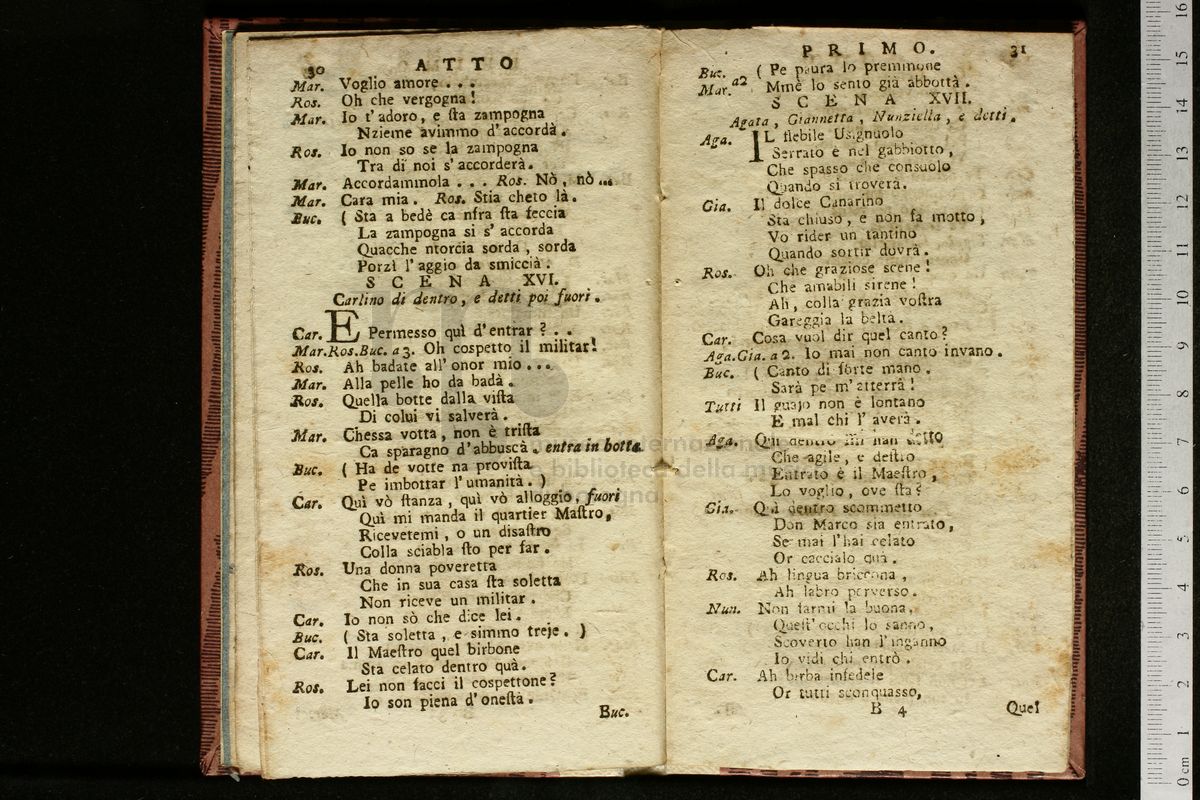 30 ATTO
Mar. Voglio amore . . .
Ros. Oh che vergogna!
Mar. Io t'adoro, e ſta zampogna
Nzieme avimmo d'accordà.
Ros. Io non so se la zampogna
Tra di noi s'accorderà.
Mar. Accordammola . . . Ros. Nò, nò ...
Mar. Cara mia. Ros. Stia cheto là.
Buc. ( Sta a bedè ca nfra ſta feccia
La zampogna si s'accorda
Quacche ntorcia sorda, sorda
Porzì l'aggio da smiccià.
SCENA XVI.
Carlino di dentro, e detti poi fuori.
Car. E Permesso quì d'entrar? . .
Mar.Ros.Buc. a 3. Oh cospetto il militar!
Ros. Ah badate all'onor mio ...
Mar. Alla pelle ho da badà.
Ros. Quella botte dalla viſta
Di colui vi salverà.
Mar. Chessa votta, non è triſta
Ca sparagno d'abbuscà. entra in botta.
Buc. ( Ha de votte na proviſta
Pe imbottar l'umanità. )
Car. Quì vò ſtanza, quì vò alloggio, fuori
Quì mi manda il quartier Maſtro,
Ricevetemi, o un disaſtro
Colla sciabla ſto per far.
Ros. Una donna poveretta
Che in sua casa ſta soletta
Non riceve un militar.
Car. Io non sò che dice lei.
Buc. ( Sta soletta, e simmo treje. )
Car. Il Maeſtro quel birbone
Sta celato dentro quà.
Ros. Lei non facci il cospettone?
Io son piena d'oneſtà.
Buc.
PRIMO. 31
Buc. Mar. a2 ( Pe paura lo premmone
Mmè lo sento già abbottà.
SCENA XVII.
Agata, Giannetta, Nunziella, e detti.
Aga. IL flebile Usignuolo
Serrato è nel gabbiotto,
Che spasso che consuolo
Quando si troverà.
Gia. Il dolce Canarino
Sta chiuso, e non fa motto,
Vo rider un tantino
Quando sortir dovrà.
Ros. Oh che graziose scene!
Che amabili sirene!
Ah, colla grazia voſtra
Gareggia la beltà.
Car. Cosa vuol dir quel canto?
Aga.Gia. a 2. Io mai non canto invano.
Buc. ( Canto di forte mano.
Sarà pe m'atterrà!
Tutti Il guajo non è lontano
E mal chi l'averà.
Aga. Quì dentro mi han detto
Che agile, e deſtro
Entrato è il Maeſtro,
Lo voglio, ove ſta?
Gia. Quì dentro scommetto
Don Marco sia entrato,
Se mai l'hai celato
Or caccialo quà.
Ros. Ah lingua briccona,
Ah labro perverso.
Nun. Non farmi la buona,
Queſt'occhi lo sanno,
Scoverto han l'inganno
Io vidi chi entrò.
Car. Ah birba infedele
Or tutti sconquasso,
B 4 Quel